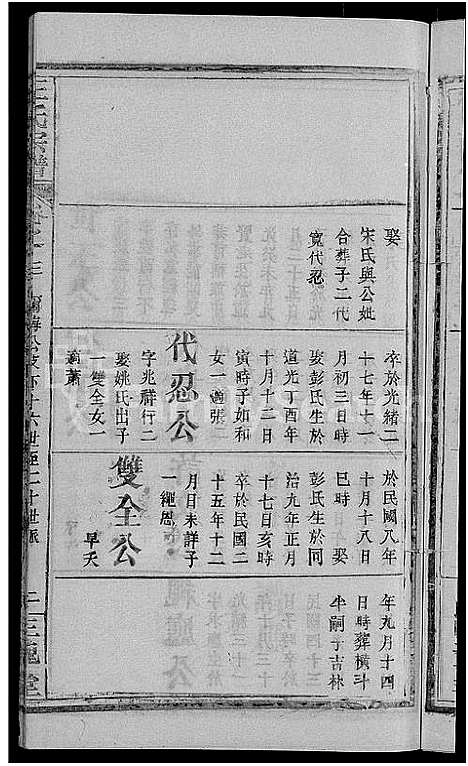 娶
宋氏與公妣
合葬子二代
寬代忍
卒於光緒二
十七年十一
月初三日時
娶彭氏生於
道光丁酉年
十月十二日
寅時子如和
女一適張
代忍公
字兆祥行二
娶姚氏出子
一雙全女一
適蕭
於民國八年
十月十八日
巳時 娶
彭氏生於同
治九年正月
十七日亥時
卒於民國二
十五年十二
月日未詳子
一繩恩
雙全公
早夭
年九月十四
日時葬橫斗
半嗣子吉林
王氏宗譜
卷之三
公支下十六世至二十世派
二
三槐堂